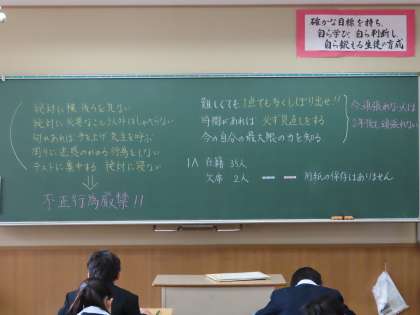 確かな目標を持ち、
自ら学び、自ら判断し、
自ら鍛える生徒の育成
絶対に横・後ろを見ない
絶対に必要なこと以外はしゃべらない
何かあれば手を上げ先生を呼ぶ
周りに迷惑のかかる行為をしない
テストに集中する 絶対に寝ない
不正行為厳禁!!
難しくても1点でもなくしぼり出せ!!
時間があれば必ず見直しをする
今の自分の最大限の力を知る
今頑張れない人は
2年後も頑張れない
1A 在籍 35人
欠席 2人
用紙の保存はありません